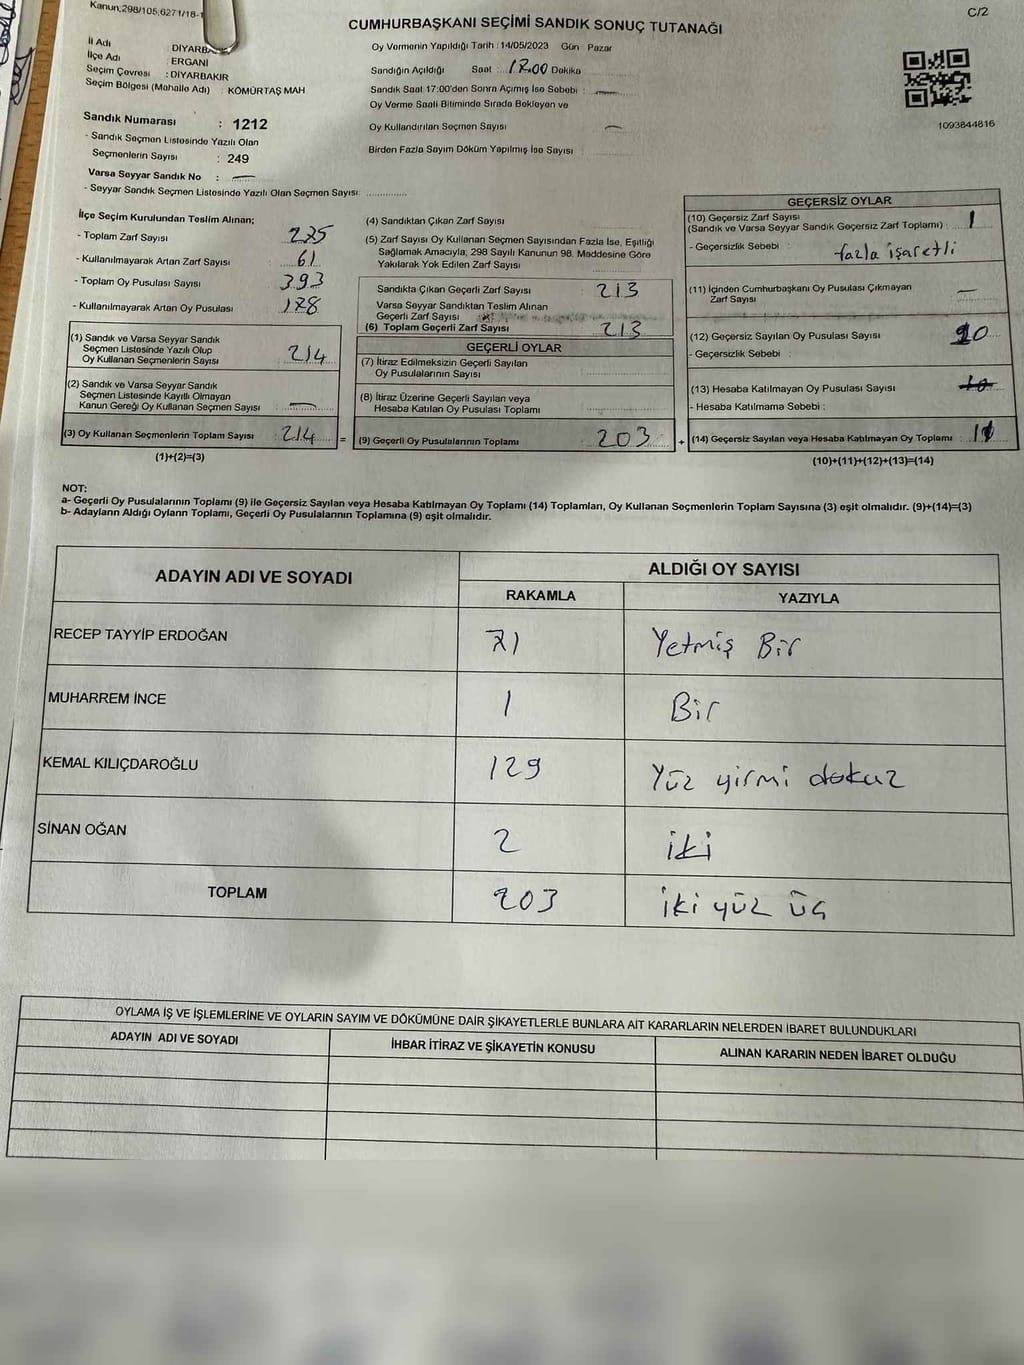 Kanun,298/105,6271/18-1
C/2
CUMHURBAŞKANI SEÇİMİ SANDIK SONUÇ TUTANAĞI
İl Adı
İlçe Adı : ERGANİ
Seçim Çevresi : DİYARBAKIR
Seçim Bölgesi (Mahalle Adı) : KÖMÜRTAŞ MAH
Sandık Numarası : 1212
- Sandık Seçmen Listesinde Yazılı Olan
Seçmenlerin Sayısı : 249
Varsa Seyyar Sandık No : —
- Seyyar Sandık Seçmen Listesinde Yazılı Olan Seçmen Sayısı:
Oy Vermenin Yapıldığı Tarih : 14/05/2023 Gün Pazar
Sandığın Açıldığı Saat : 17.00 Dakika
Sandık Saat 17:00'den Sonra Açımış İse Sebebi : —
Oy Verme Saati Bitiminde Sırada Bekleyen ve
Oy Kullandırılan Seçmen Sayısı —
Birden Fazla Sayım Döküm Yapılmış İse Sayısı
1093844816
İlçe Seçim Kurulundan Teslim Alınan;
- Toplam Zarf Sayısı : 275
- Kullanılmayarak Artan Zarf Sayısı : 61
- Toplam Oy Pusulası Sayısı : 393
- Kullanılmayarak Artan Oy Pusulası : 178
(1) Sandık ve Varsa Seyyar Sandık
Seçmen Listesinde Yazılı Olup
Oy Kullanan Seçmenlerin Sayısı : 214
(2) Sandık ve Varsa Seyyar Sandık
Seçmen Listesinde Kayıtlı Olmayan
Kanun Gereği Oy Kullanan Seçmen Sayısı : —
(3) Oy Kullanan Seçmenlerin Toplam Sayısı : 214 =
(1)+(2)=(3)
(4) Sandıktan Çıkan Zarf Sayısı
(5) Zarf Sayısı Oy Kullanan Seçmen Sayısından Fazla İse, Eşitliği
Sağlamak Amacıyla, 298 Sayılı Kanunun 98. Maddesine Göre
Yakılarak Yok Edilen Zarf Sayısı
Sandıkta Çıkan Geçerli Zarf Sayısı : 213
Varsa Seyyar Sandıktan Teslim Alınan
Geçerli Zarf Sayısı
(6) Toplam Geçerli Zarf Sayısı : 213
GEÇERLİ OYLAR
(7) İtiraz Edilmeksizin Geçerli Sayılan
Oy Pusulalarının Sayısı
(8) İtiraz Üzerine Geçerli Sayılan veya
Hesaba Katılan Oy Pusulası Toplamı
(9) Geçerli Oy Pusulalarının Toplamı : 203 +
GEÇERSİZ OYLAR
(10) Geçersiz Zarf Sayısı
(Sandık ve Varsa Seyyar Sandık Geçersiz Zarf Toplamı) : 1
- Geçersizlik Sebebi : fazla işaretli
(11) İçinden Cumhurbaşkanı Oy Pusulası Çıkmayan
Zarf Sayısı : —
(12) Geçersiz Sayılan Oy Pusulası Sayısı : 10
- Geçersizlik Sebebi :
(13) Hesaba Katılmayan Oy Pusulası Sayısı : 10
- Hesaba Katılmama Sebebi :
(14) Geçersiz Sayılan veya Hesaba Katılmayan Oy Toplamı : 11
(10)+(11)+(12)+(13)=(14)
NOT:
a- Geçerli Oy Pusulalarının Toplamı (9) ile Geçersiz Sayılan veya Hesaba Katılmayan Oy Toplamı (14) Toplamları, Oy Kullanan Seçmenlerin Toplam Sayısına (3) eşit olmalıdır. (9)+(14)=(3)
b- Adayların Aldığı Oyların Toplamı, Geçerli Oy Pusulalarının Toplamına (9) eşit olmalıdır.
ADAYIN ADI VE SOYADI
ALDIĞI OY SAYISI
RAKAMLA YAZIYLA
RECEP TAYYİP ERDOĞAN 71 Yetmiş Bir
MUHARREM İNCE 1 Bir
KEMAL KILIÇDAROĞLU 129 Yüz yirmi dokuz
SİNAN OĞAN 2 iki
TOPLAM 203 iki yüz üç
OYLAMA İŞ VE İŞLEMLERİNE VE OYLARIN SAYIM VE DÖKÜMÜNE DAİR ŞİKAYETLERLE BUNLARA AİT KARARLARIN NELERDEN İBARET BULUNDUKLARI
ADAYIN ADI VE SOYADI İHBAR İTİRAZ VE ŞİKAYETİN KONUSU ALINAN KARARIN NEDEN İBARET OLDUĞU